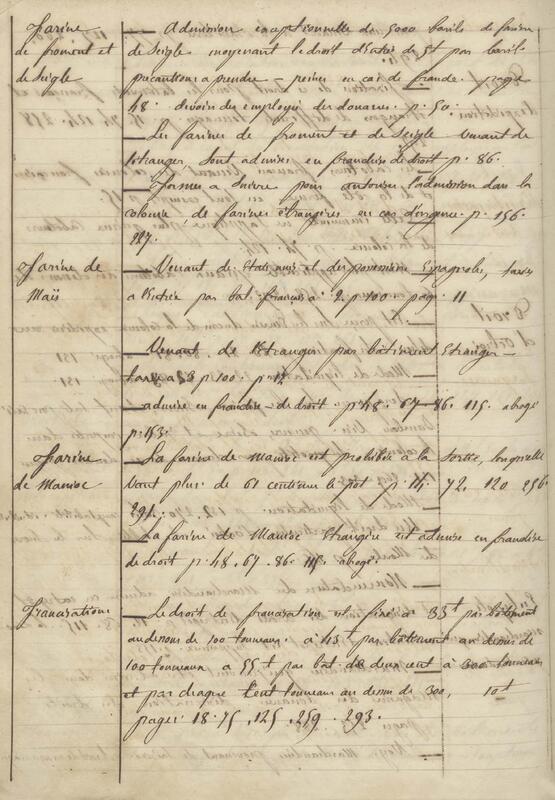 Farine
de froment et
de Seigle
— Admission exceptionnelle de 5000 barils de farine
de Seigle moyenant le droit d'entrée de 5f par barils
précautions a prendre — peines en cas de fraude. page
48. devoirs des employés des douanes. p. 50.
— Les farines de froment et de Seigle venant de
l'étranger, sont admises en franchise de droit p. 86.
— Formes a suivre pour autoriser l'admission dans la
colonie, de farines étrangères en cas d'urgence. p. 156.
227.
Farine de
Maïs
— Venant des Etats unis et des possessions Espagnoles, taxées
a l'entrée par bat. français à 2. p. 100. pag. 11
— Venant de l'étranger par bâtiment Etranger —
p. 100. p. 12
— admise en franchise — de droit. p. 48. 67 — 86. 115. abrogé
p. 153.
Farine
de Manioc
— La farine de manioc est prohibée à la Sortie, lorsqu'elle
vaut plus de 60 centimes le pot p. 72. 120 256.
294.
— La farine de Manioc étrangère est admise en franchise
de droit p. 48. 67. 86. 115 abrogé.
Francisation
— Le droit de francisation est fixé à 33f par bâtiment
au dessous de 100 tonneaux. à 45f par bâtiment au dessus de
100 tonneaux a 55f par bât. de deux cent à 300 tonneaux
et par chaque Cent tonneaux au dessus de 300, 10f
pages 18. 75, 125, 259. 293.